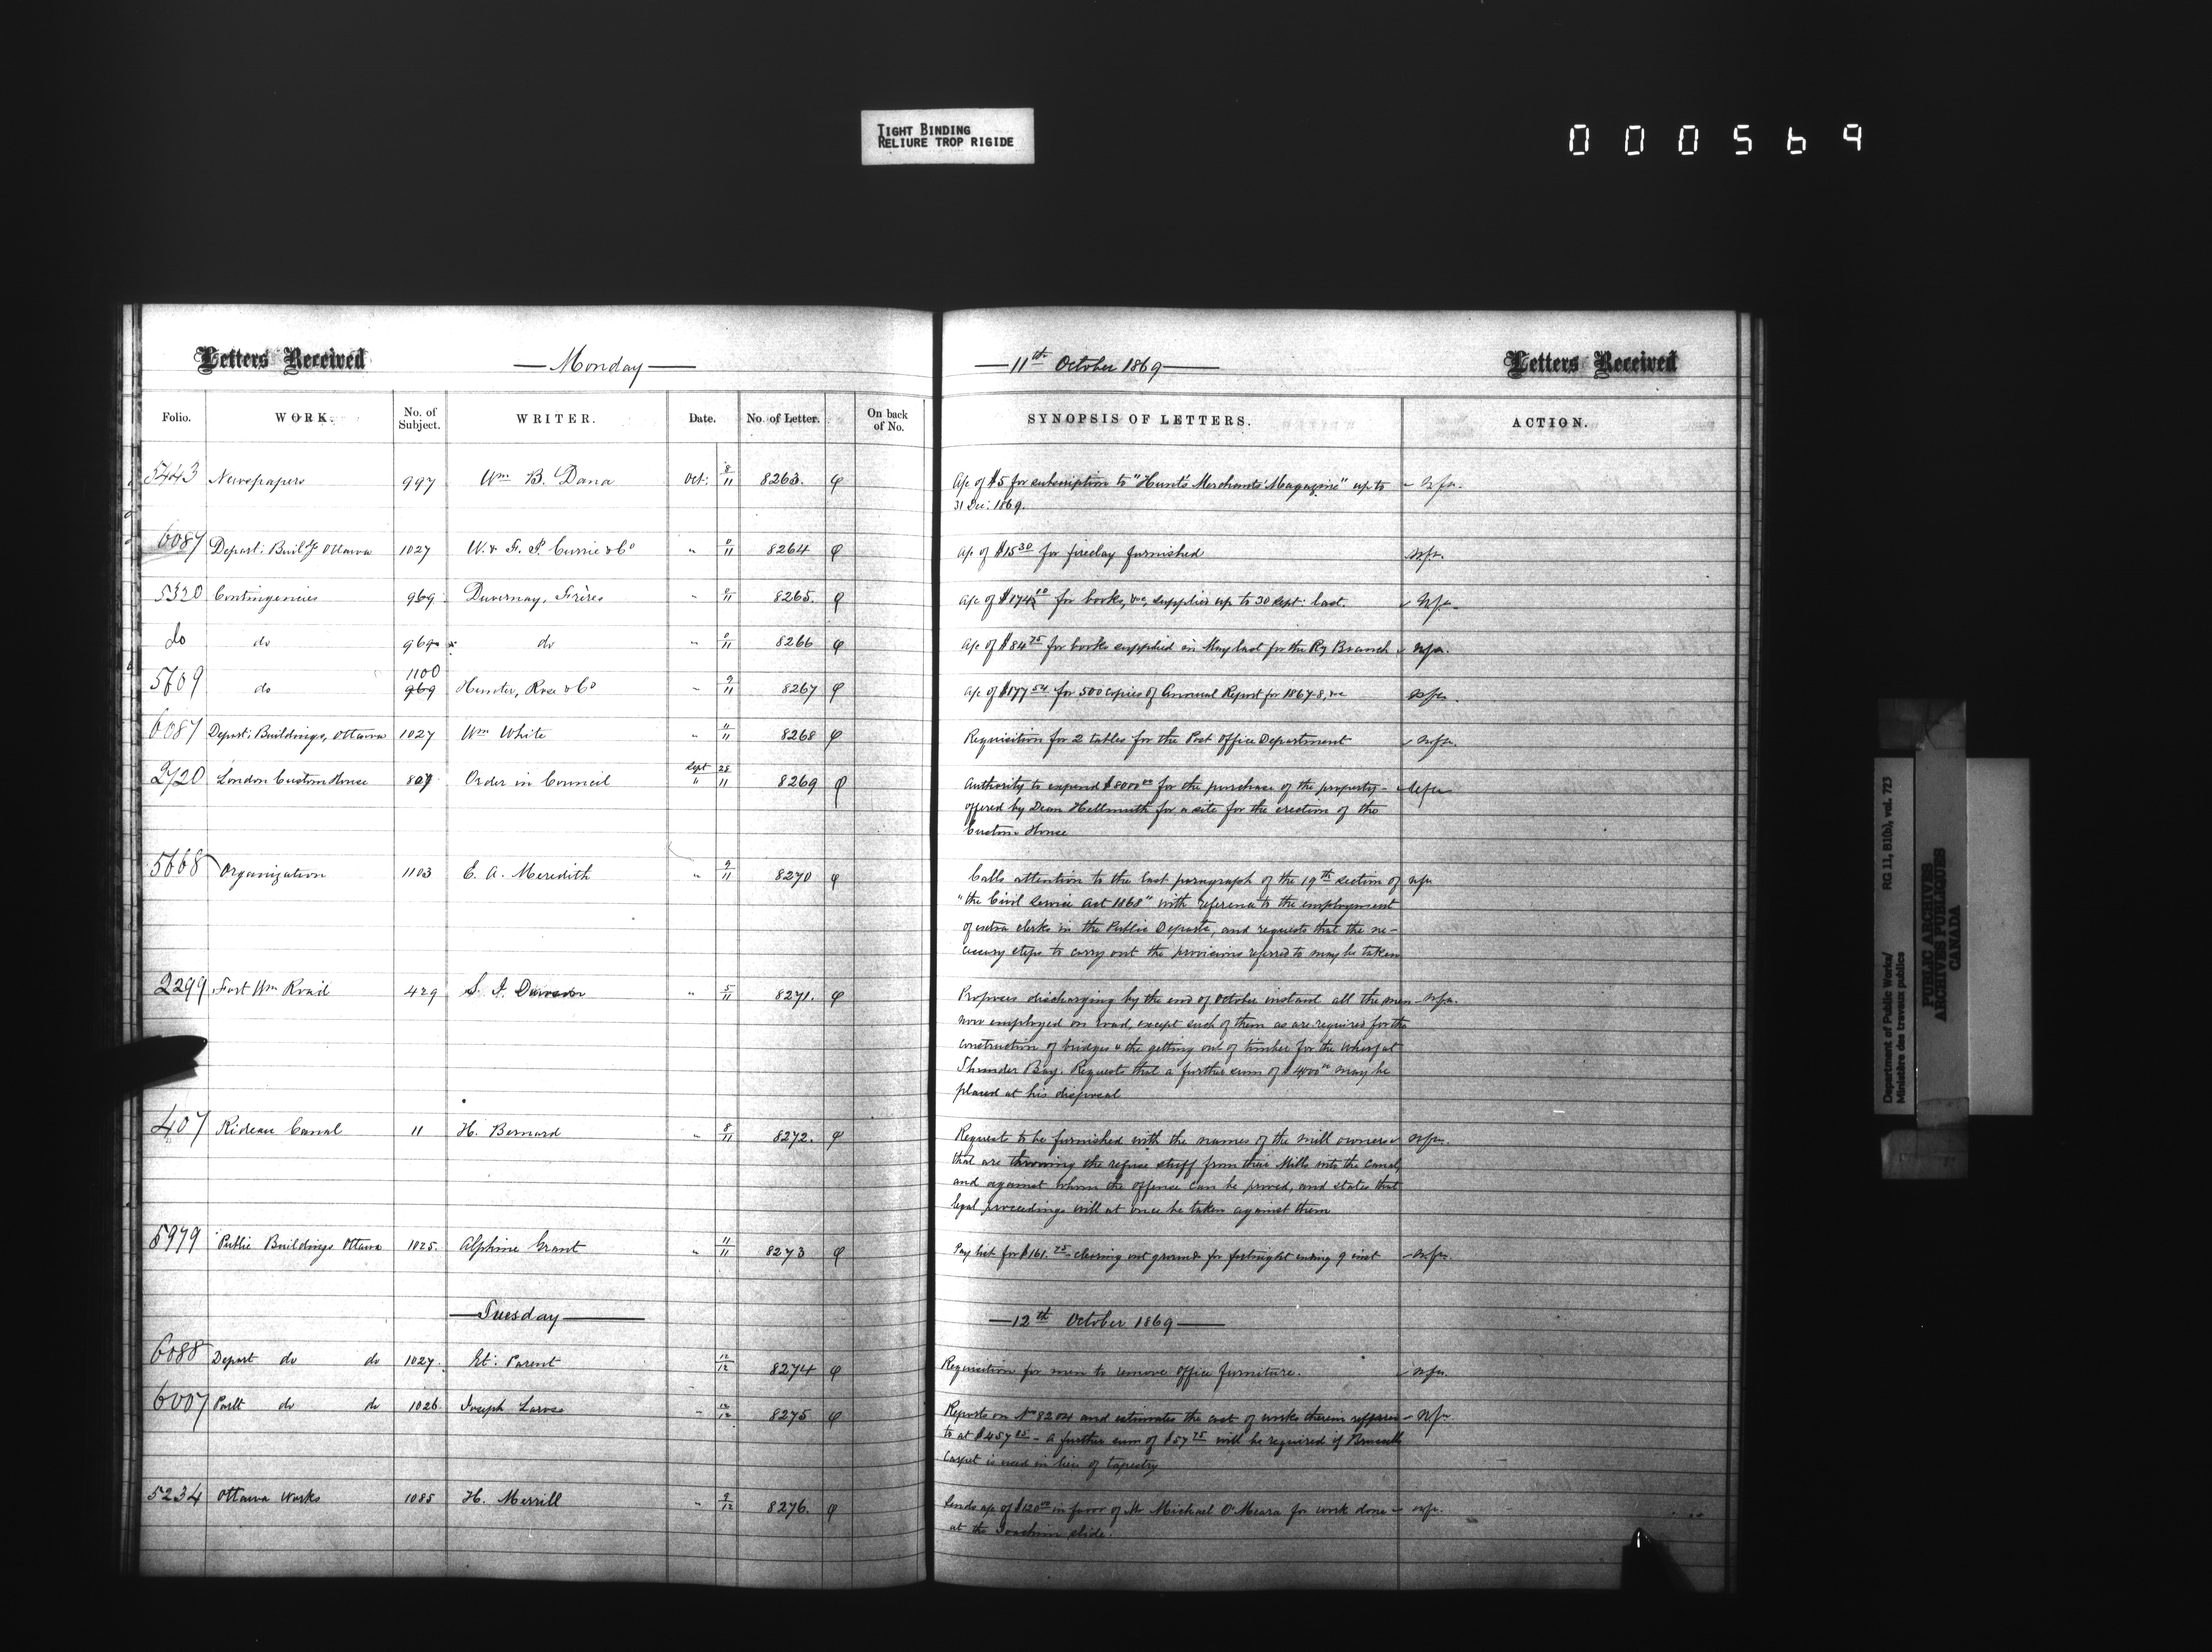 TIGHT BINDING
RELIURE TROP RIGIDE
000569
Letters Received
— Monday —
— 11th October 1869 —
Letters Received
Folio. WORK. No. of Subject. WRITER. Date. No. of Letter. On back of No. SYNOPSIS OF LETTERS. ACTION.
5443 Newspapers 997 Wm B. Dana Oct: 8/11 8263. φ A/c of $5 for subscription to "Hunt's Merchants' Magazine" up to nfa.
31 Dec: 1869.
6087 Depart: Buildgs Ottawa 1027 W. & F. P. Currie & Co " 11 8264 φ a/c of $15 30 for fireclay furnished nfa.
5320 Contingencies 969 Duvernay, Frères " 11 8265. φ A/c of $174 10 for books, &c, supplied up to 30 Sept: last. nfa
do do 969 do " 11 8266 φ A/c of $84 75 for books supplied in May last for the Ry Branch nfa.
5609 do 1100 969 Hunter, Rose & Co " 9/11 8267 φ a/c of $177 54 for 500 copies of Annual Report for 1867-8, &c nfa
6087 Depart: Buildings, Ottawa 1027 Wm White " 11/11 8268 φ Requisition for 2 tables for the Post Office Department nfa.
2720 London Custom House 807 Order in Council Sept 28 " 11 8269 φ Authority to expend $8000 00 for the purchase of the property nfa
offered by Dean Hellmuth for a site for the erection of the
Custom House
5668 Organization 1103 E. A. Meredith " 9/11 8270 φ Calls attention to the last paragraph of the 19th section of nfa
"the Civil Service Act 1868" with reference to the employment
of extra clerks in the Public Departs, and requests that the ne-
cessary steps to carry out the provisions referred to may be taken
2299 Fort Wm Road 429 S. J. Dawson " 5/11 8271. φ Proposes discharging by the end of October instant all the men nfa.
now employed on road, except such of them as are required for the
construction of bridges & the getting out of timber for the wharf at
Thunder Bay. Requests that a further sum of $4000 00 may be
placed at his disposal
407 Rideau Canal 11 H. Bernard " 8/11 8272. φ Requests to be furnished with the names of the mill owners nfa.
that are throwing the refuse stuff from their Mills into the Canal,
and against whom the offence can be proved, and states that
legal proceedings will at once be taken against them
5979 Public Buildings Ottawa 1025. Alphine Grant " 11/11 8273 φ Pay list for $161. 25 clearing out grounds for fortnight ending 9 inst nfa.
— Tuesday —
— 12th October 1869 —
6088 Depart do do 1027. Et: Parent 12/12 8274 φ Requisition for men to remove office furniture. nfa.
6007 Parlt do do 1026. Joseph Larose " 12/12 8275 φ Reports on No 8204 and estimates the cost of works therein refferred nfa.
to at $457 25 - a further sum of $57 75 will be required if Brussells
Carpet is used in lieu of tapestry
5234 Ottawa Works 1085 H. Merrill " 9/12 8276. φ Sends a/c of $120 00 in favor of Mr Michael O'Meara for work done nfa.
at the Joachim slide.
Department of Public Works/ RG 11, B1(b), vol. 723
Ministère des travaux publics
PUBLIC ARCHIVES
ARCHIVES PUBLIQUES
CANADA